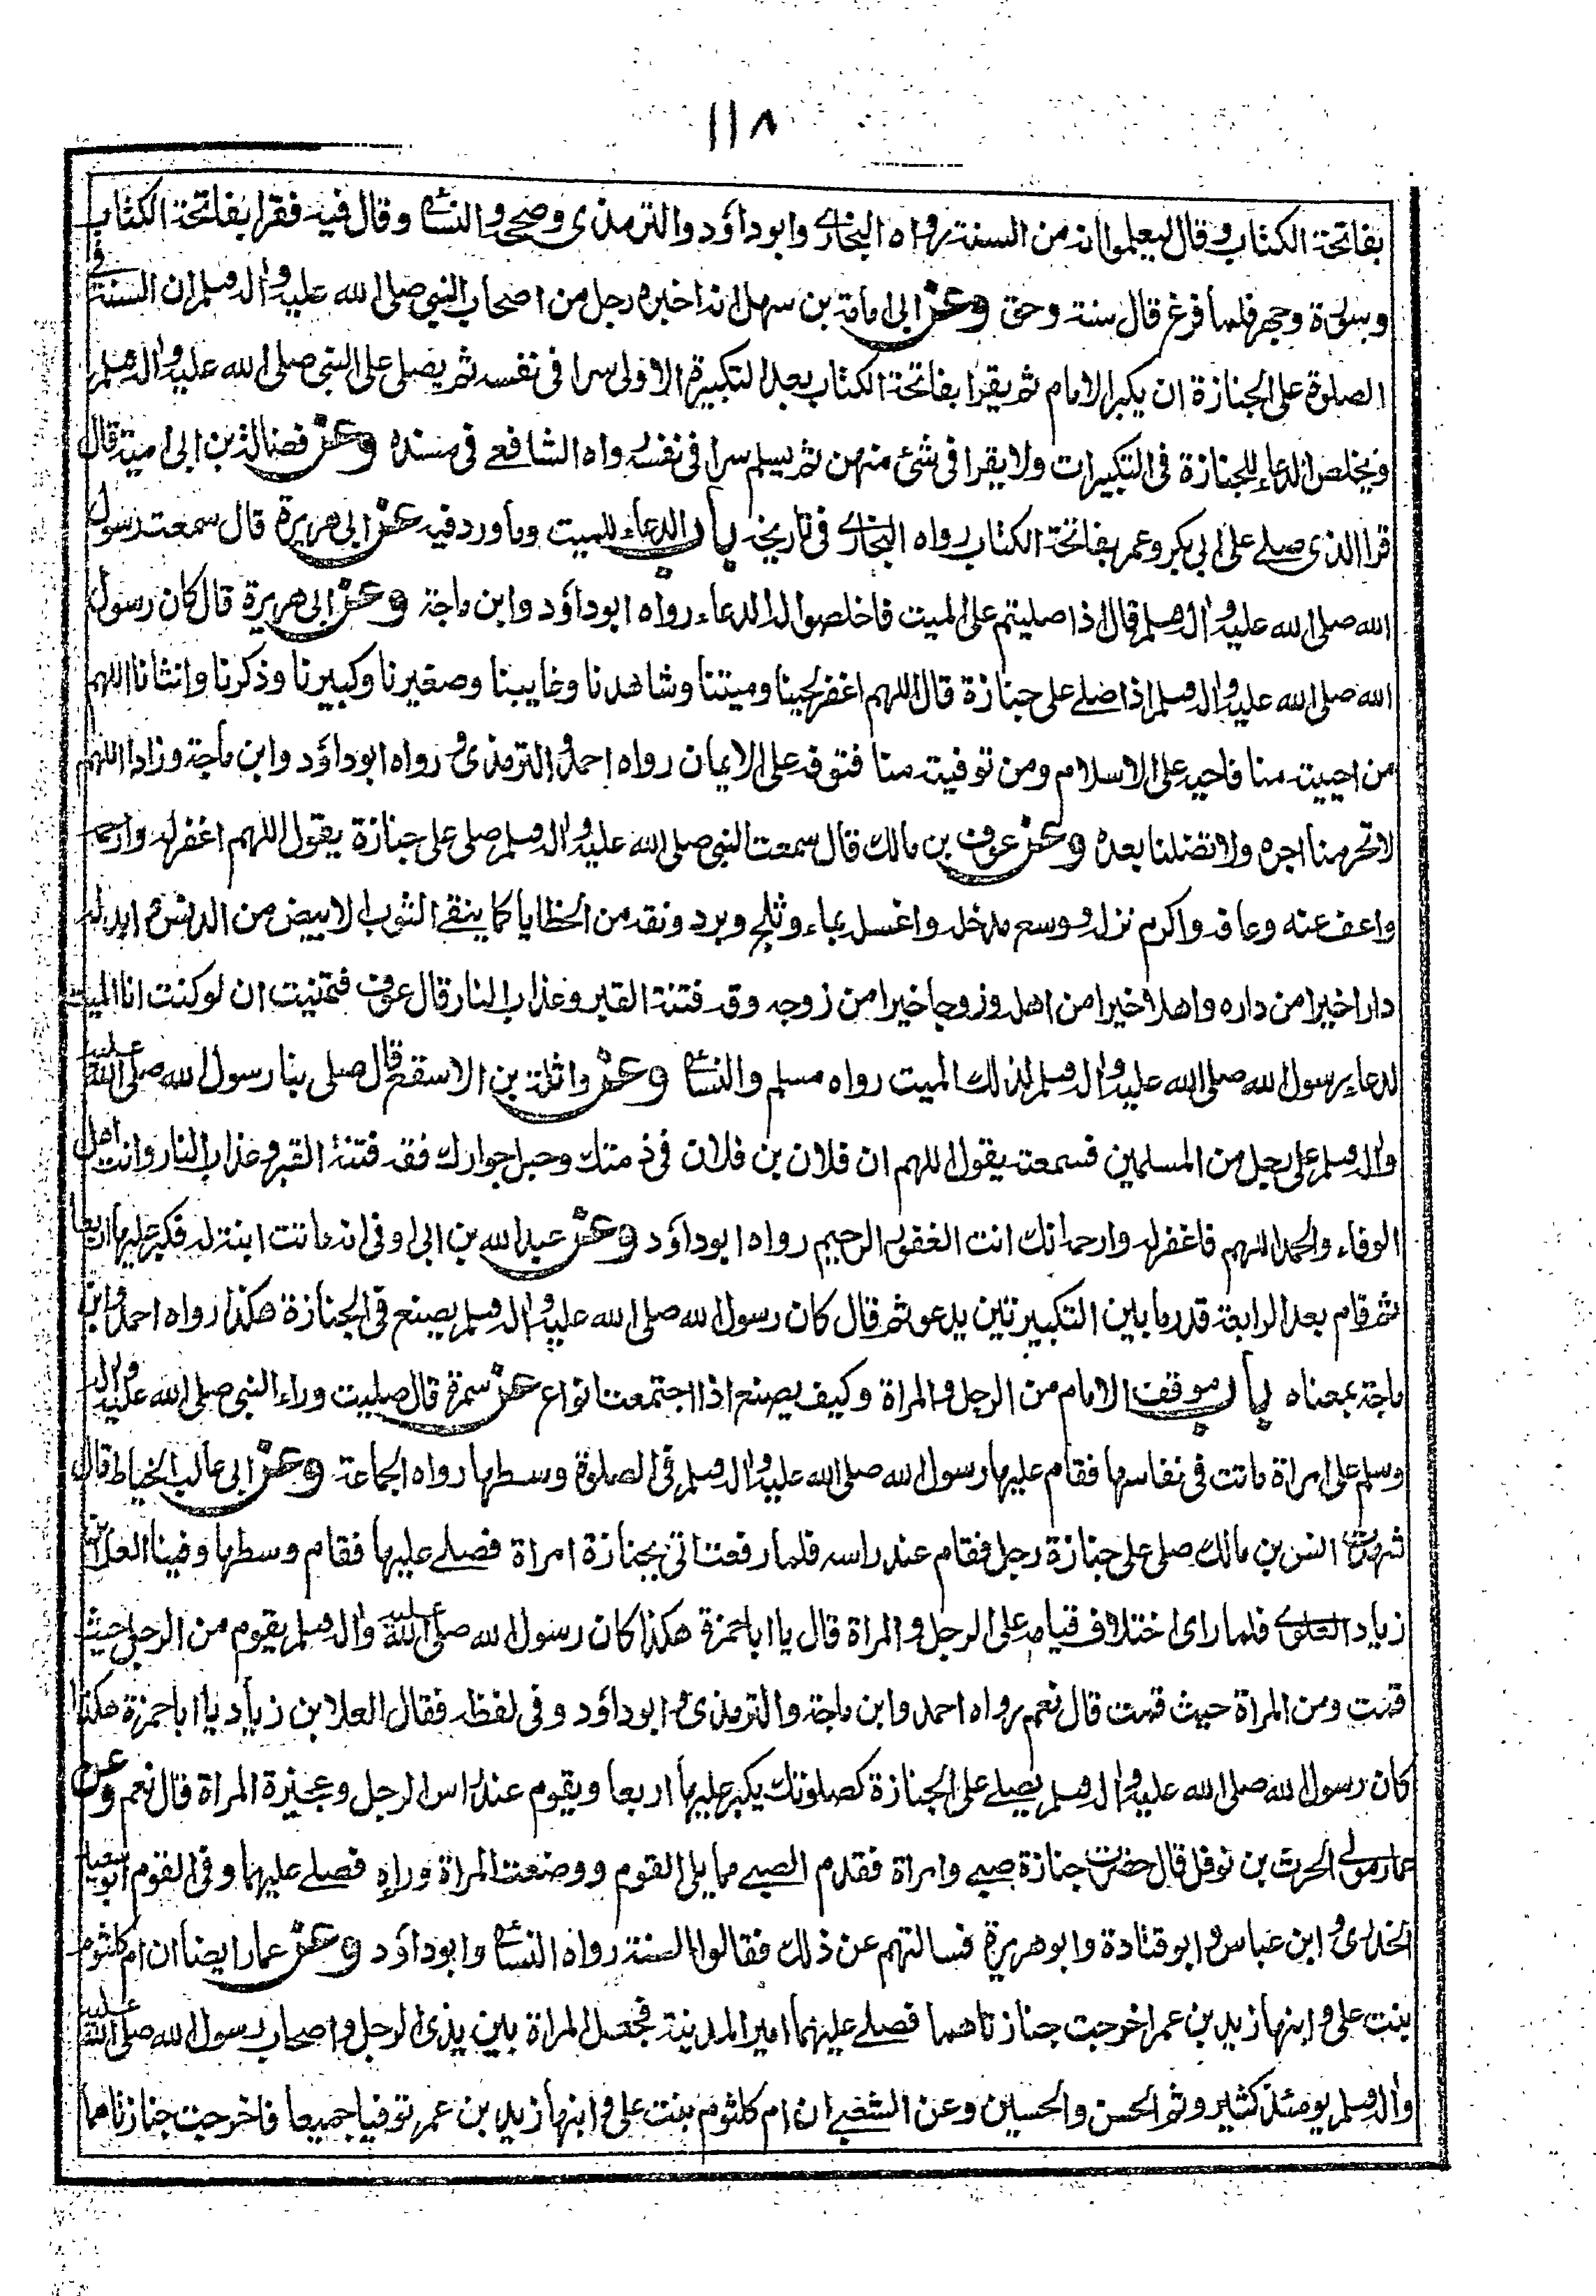 ١١٨
بفاتحة الكتاب وقال ليعلموا انه من السنة رواه البخاري وابوداؤد والترمذى وصححه والنسائي وقال فيه فقرا بفاتحة الكتاب
وسورة وجهر فلما فرغ قال سنة وحق وعن ابى امامة بن سهل انه اخبره رجل من اصحاب النبي صلى الله عليه واٰله وسلم ان السنة في
الصلوة على الجنازة ان يكبر الامام ثم يقرا بفاتحة الكتاب بعد التكبيرة الاولى سرا فى نفسه ثم يصلى على النبى صلى الله عليه واٰله وسلم
ويخلص الدعاء للجنازة فى التكبيرات ولا يقرا فى شئ منهن ثم يسلم سرا فى نفسه رواه الشافعے فى مسنده وعن فضالة بن ابى امية قال
قرا الذى صلے على ابى بكر وعمر بفاتحة الكتاب رواه البخاري فى تاريخه باب الدعاء للميت وما ورد فيه عن ابى هريرة قال سمعت رسول
الله صلى الله عليه واٰله وسلم قال اذا صليتم على الميت فاخلصوا له الدعاء رواه ابوداؤد وابن ماجة وعن ابى هريرة قال كان رسول
الله صلى الله عليه واٰله وسلم اذا صلے على جنازة قال اللهم اغفر لحينا وميتنا وشاهدنا وغايبنا وصغيرنا وكبيرنا وذكرنا وانثانا اللهم
من احييته منا فاحيه على الاسلام ومن توفيته منا فتوفه على الايمان رواه احمد والترمذى ورواه ابوداؤد وابن ماجة وزادا اللهم
لا تحرمنا اجره ولا تضلنا بعده وعن عوف بن مالك قال سمعت النبى صلى الله عليه واٰله وسلم صلى على جنازة يقول اللهم اغفر له وارحمه
واعف عنه وعافه واكرم نزله ووسع مدخله واغسله بماء وثلج وبرد ونقه من الخطايا كما ينقے الثوب الابيض من الدنس وابدله
دارا خيرا من داره واهلا خيرا من اهله وزوجا خيرا من زوجه وقه فتنة القبر وعذاب النار قال عوف فتمنيت ان لو كنت انا الميت
لدعاء رسول الله صلى الله عليه واٰله وسلم لذلك الميت رواه مسلم والنسائي وعن واثلة بن الاسقع قال صلى بنا رسول الله صلى الله عليه
واٰله وسلم على رجل من المسلمين فسمعته يقول اللهم ان فلان بن فلان فى ذمتك وحبل جوارك فقه فتنة القبر وعذاب النار وانت اهل
الوفاء والحمد اللهم فاغفر له وارحمه انك انت الغفور الرحيم رواه ابوداؤد وعن عبد الله بن ابى اوفى انه ماتت ابنة له فكبر عليها اربعا
ثم قام بعد الرابعة قدر ما بين التكبيرتين يدعو ثم قال كان رسول الله صلى الله عليه واٰله وسلم يصنع فى الجنازة هكذا رواه احمد وابن
ماجة بمعناه باب موقف الامام من الرجل والمراة وكيف يصنع اذا اجتمعت انواع عن سمرة قال صليت وراء النبى صلى الله عليه واٰله
وسلم على امراة ماتت فى نفاسها فقام عليها رسول الله صلى الله عليه واٰله وسلم فى الصلوة وسطها رواه الجماعة وعن ابى غالب الخياط قال
شهدت انس بن مالك صلى على جنازة رجل فقام عند راسه فلما رفعت اتى بجنازة امراة فصلے عليها فقام وسطها وفينا العلا بن
زياد العلوي فلما راى اختلاف قيامه على الرجل والمراة قال يا ابا حمزة هكذا كان رسول الله صلى الله عليه واٰله وسلم يقوم من الرجل حيث
قمت ومن المراة حيث قمت قال نعم رواه احمد وابن ماجة والترمذى وابوداؤد وفى لفظه فقال العلا بن زياد يا ابا حمزة هكذا
كان رسول الله صلى الله عليه واٰله وسلم يصلے على الجنازة كصلوتك يكبر عليها اربعا ويقوم عند راس الرجل وعجيزة المراة قال نعم وعن
عمار مولے الحرث بن نوفل قال حضرت جنازة صبے وامراة فقدم الصبے مما يلى القوم ووضعت المراة وراءه فصلے عليهما وفى القوم ابو سعيد
الخدرى وابن عباس وابو قتادة وابو هريرة فسالتهم عن ذلك فقالوا السنة رواه النسائي وابوداؤد وعن عمار ايضا ان ام كلثوم
بنت على وابنها زيد بن عمر اخرجت جنازتاهما فصلے عليهما امير المدينة فجعل المراة بين يدى الرجل واصحاب رسول الله صلى الله عليه
واٰله وسلم يومئذ كثير وثم الحسن والحسين وعن الشعبے ان ام كلثوم بنت على وابنها زيد بن عمر توفيا جميعا فاخرجت جنازتاهما